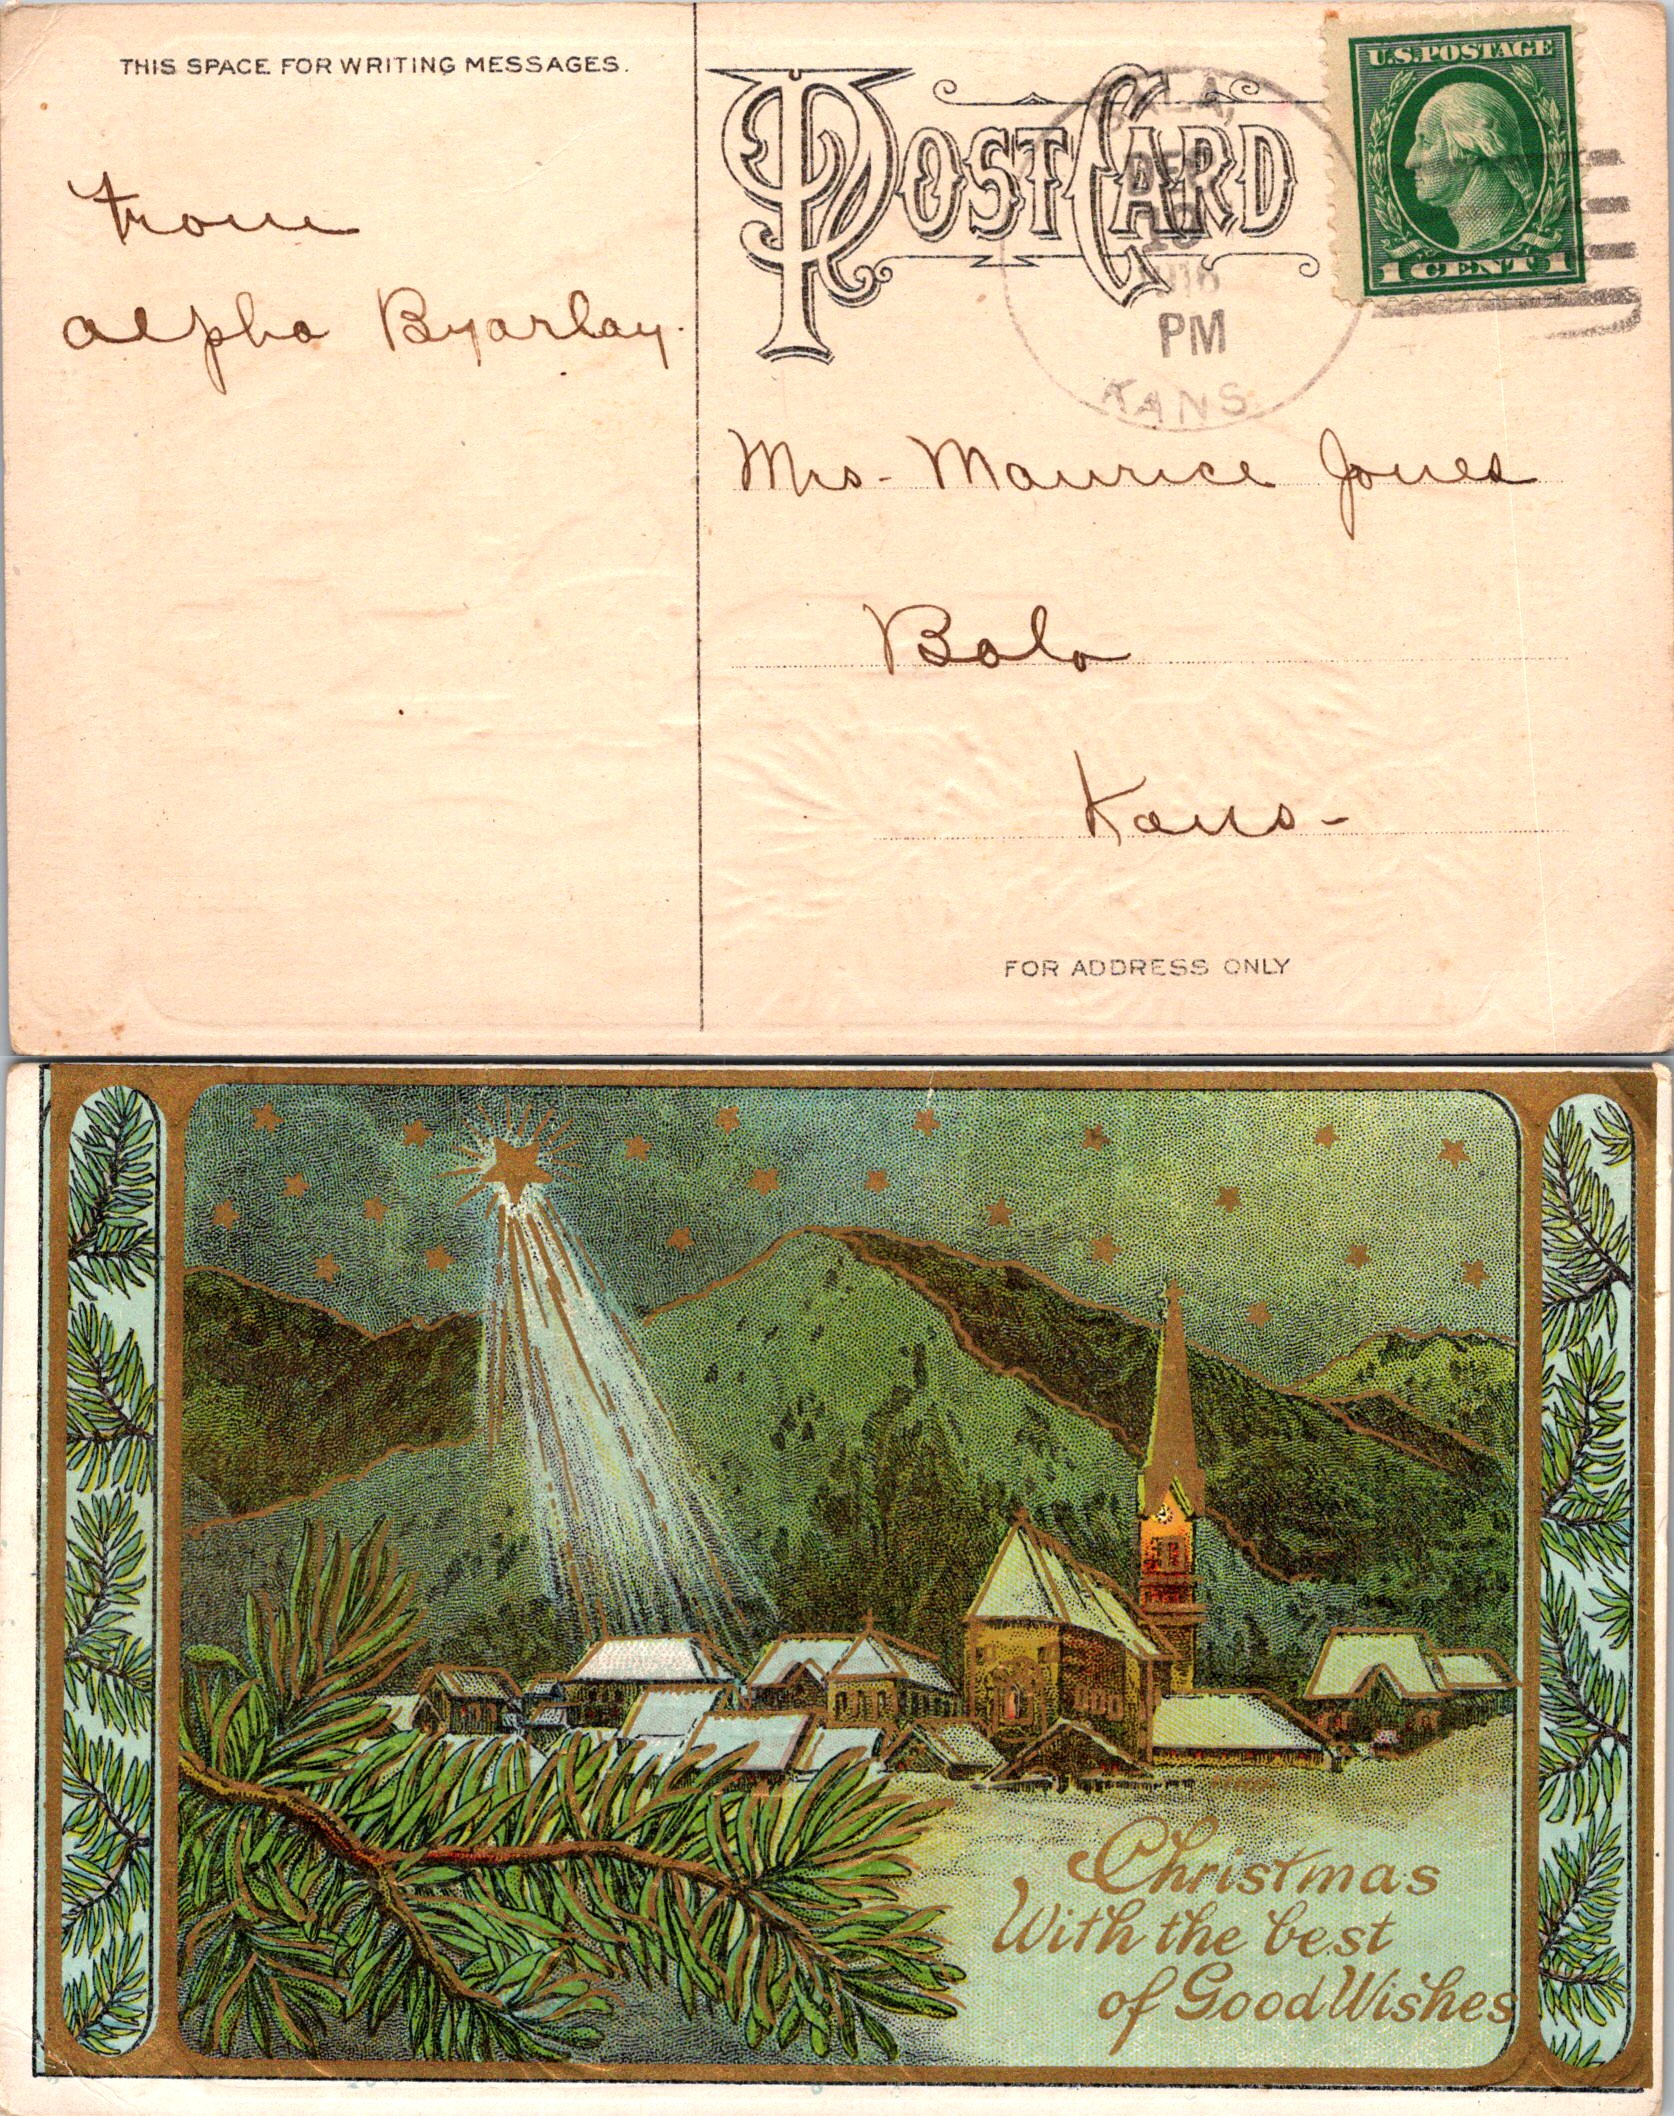 THIS SPACE FOR WRITING MESSAGES.
from
Alpha Byarlay.
POST CARD
U.S. POSTAGE
1 CENT 1
DEC
PM
KANS.
Mrs- Maurice Jones
Bala
Kans-
FOR ADDRESS ONLY
Christmas
With the best
of Good Wishes